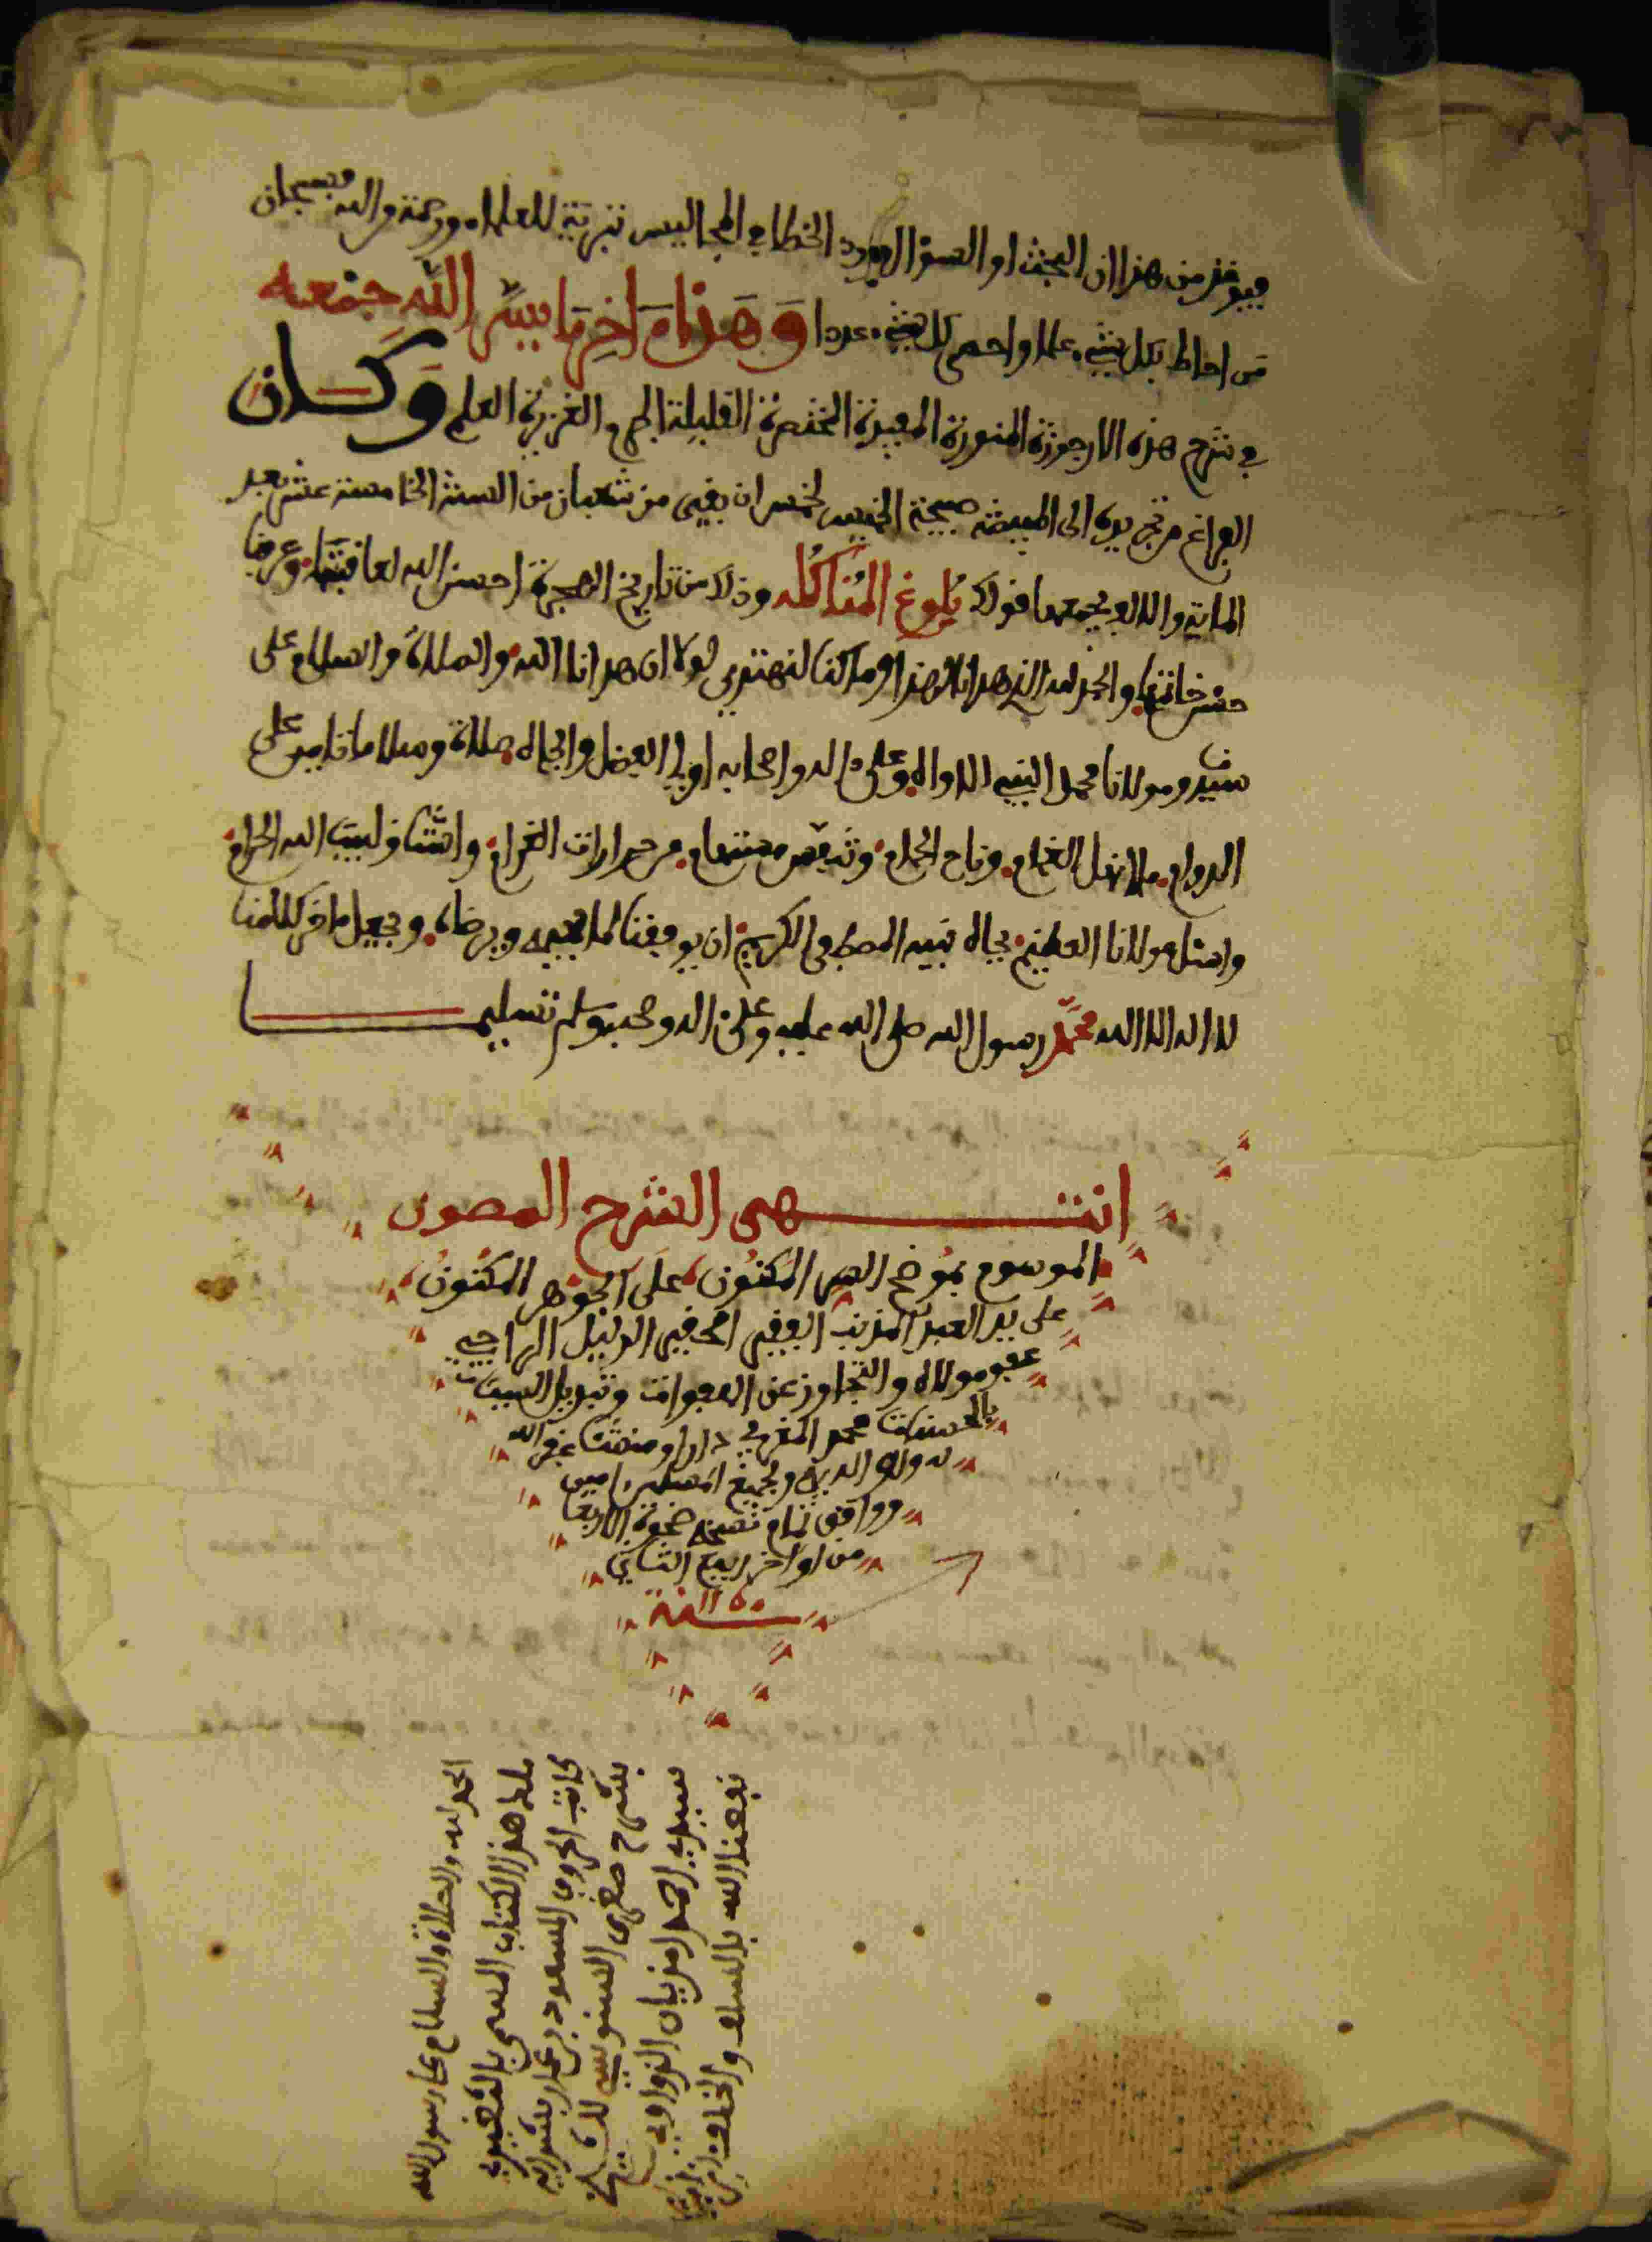 فيوخذ من هذا ان البحث او السؤال الخطا في المجاليس تبرية للعلماء ورحمة والله فسبحان
من احاط بكل شيء علما واحصى كل شيء عددا وَهَذا آخِرُ ما يسَّر اللّه جمْعه
في شرح هذه الارجوزة المنورة المفيدة المختصرة القليلة الجرم الغزيرة العلم وَكــان
الفراغ من تخريده الى المبيضة صبيحة الخميس لخمس ان بقيى من شعبان من السنة الخامسة عشر بعد
الماية والالف يجمعها قولك بُلوغ المُنا كُله وذلك من تاريخ الهجرة احسن الله لعاقبتها وعرفنا
حسن خاتمتها والحمد لله الذي هدانا لهذا وما كنا لنهتدي لولا ان هدانا الله والصلاة والسلام على
سيدنا ومولانا محمد النبيء الاواه وعلى ءاله واصحابه اولي الفضل والجاه صلاة وسلاما تامين على
الدوام ما انهل الغمام وناح الحمام من حرارات الغرام واشتاق لبيت الله الحرام
واسئل مولانا العظيم بجاه نبيه المصطفى الكريم ان يوفقنا لما يحبه ويرضاه ويجعل ءاخر كلامنا
لا اله الا الله محمَّد رسول الله صلى الله عليه وعلى ءاله وصحبه وسلم تسليمــا
انتـــهى الشرح المصون
الموسوم بمُوضح السر المكنُون علَى الجوْهر المكنُونْ
على يد العبد المذنب الفقير الحقير الذليل الراجي
عفو مولاه والتجاوز عن الهفوات وتبديل السيئات
بالحسنات محمد المغربي دارا ومنشئا غفر الله
له ولوالديه ولجميع المسلمين ءامين
ووافق تمام نسخه ضحوة الاربعا
من اواخر ربيع الثاني
ســنة
الحمد لله والصلاة والسلام على رسول الله
ملك هذا الكتاب المسمى بالثغيري
كاتب الحروف المسعود بن عمار بشراية
بشرح صغرى السنوسي للشيخ
سيدي احمد امزيان الزواوي
نفعنا الله بالسلف والخلف ءامين